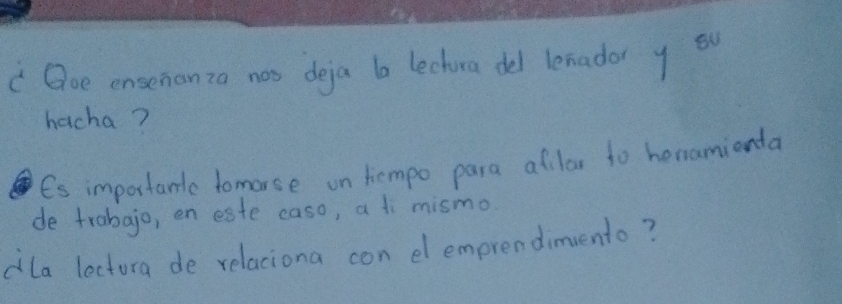 ¿Que enseñanza nos deja la lectura del leñador y su
hacha?
Es importante tomarse un tiempo para afilar tu herramienta
de trabajo, en este caso, a ti mismo.
¿La lectura de relaciona con el emprendimiento?